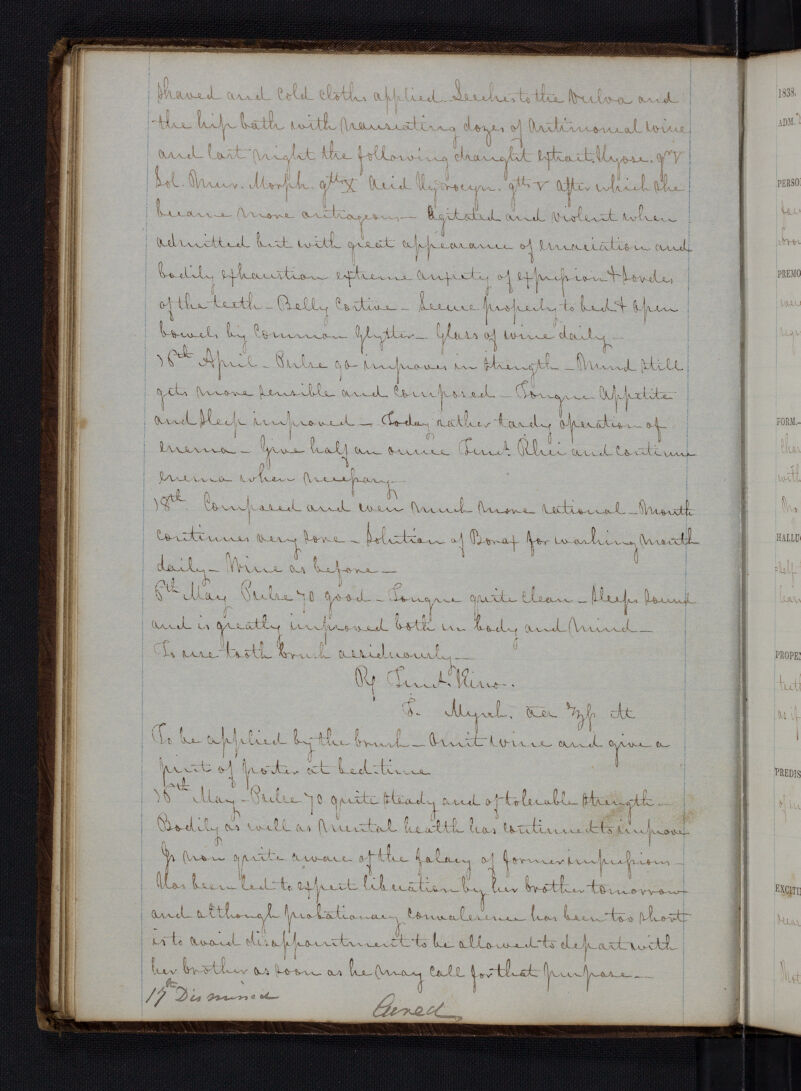 Shaved and Cold cloths applied. Leeches to the Vulva and
the hip bath with Nauseating dozes of Antimonial wine
and last Night the following draught Extract. Hyosc. gr V
Sol. Mur. Morph. gtts X Acid Hydrocyn. gtts V after which She
became More outrageous — Agitated and violent when
admitted but with great appearance of Emaciation and
bodily Exhaustion extreme anxiety of Expression & Sordes
of the teeth — Belly Costive — Secure properly to bed & Open
bowels by Common Glyster — Glass of wine daily —
16th April — Pulse 90 improves in Strength — Mind Still
gets More Sensible and Composed — Tongue Appetite
and Sleep improved — Today rather tardy operation of
enema — Give half an ounce Tinct. Rhei and Continue
enema when Necessary —
18th. Composed and even Much More rational — Mouth
Continues very Sore — Solution of Borax for washing Mouth
daily — Wine as before —
5th May Pulse 70 good — Tongue quite Clean — Sleeps Sound
and is greatly improved both in body and Mind —
To use tooth brush assiduously —
Rx Tinct. Kino.
T. Myrrh. aa ℥fs M
To be applied by the brush — Omit wine and give a
pint of porter at bed-time
16th May — Pulse 70 quite Steady and of tolerable Strength —
Bodily as well as Mental health has Continued to improve
Is Now quite aware of the falacy of former impressions —
Has been led to expect liberation by her brother tomorrow
and although probationary Convalesence has been too Short
is to avoid disappointment to be allowed to depart with
her brother as Soon as he May Call for that purpose —
17th Dismissed
Cured
1838.
ADM.
PERSO
PREMO
FORM.
HALLU
PROPE
PREDIS
EXCITI